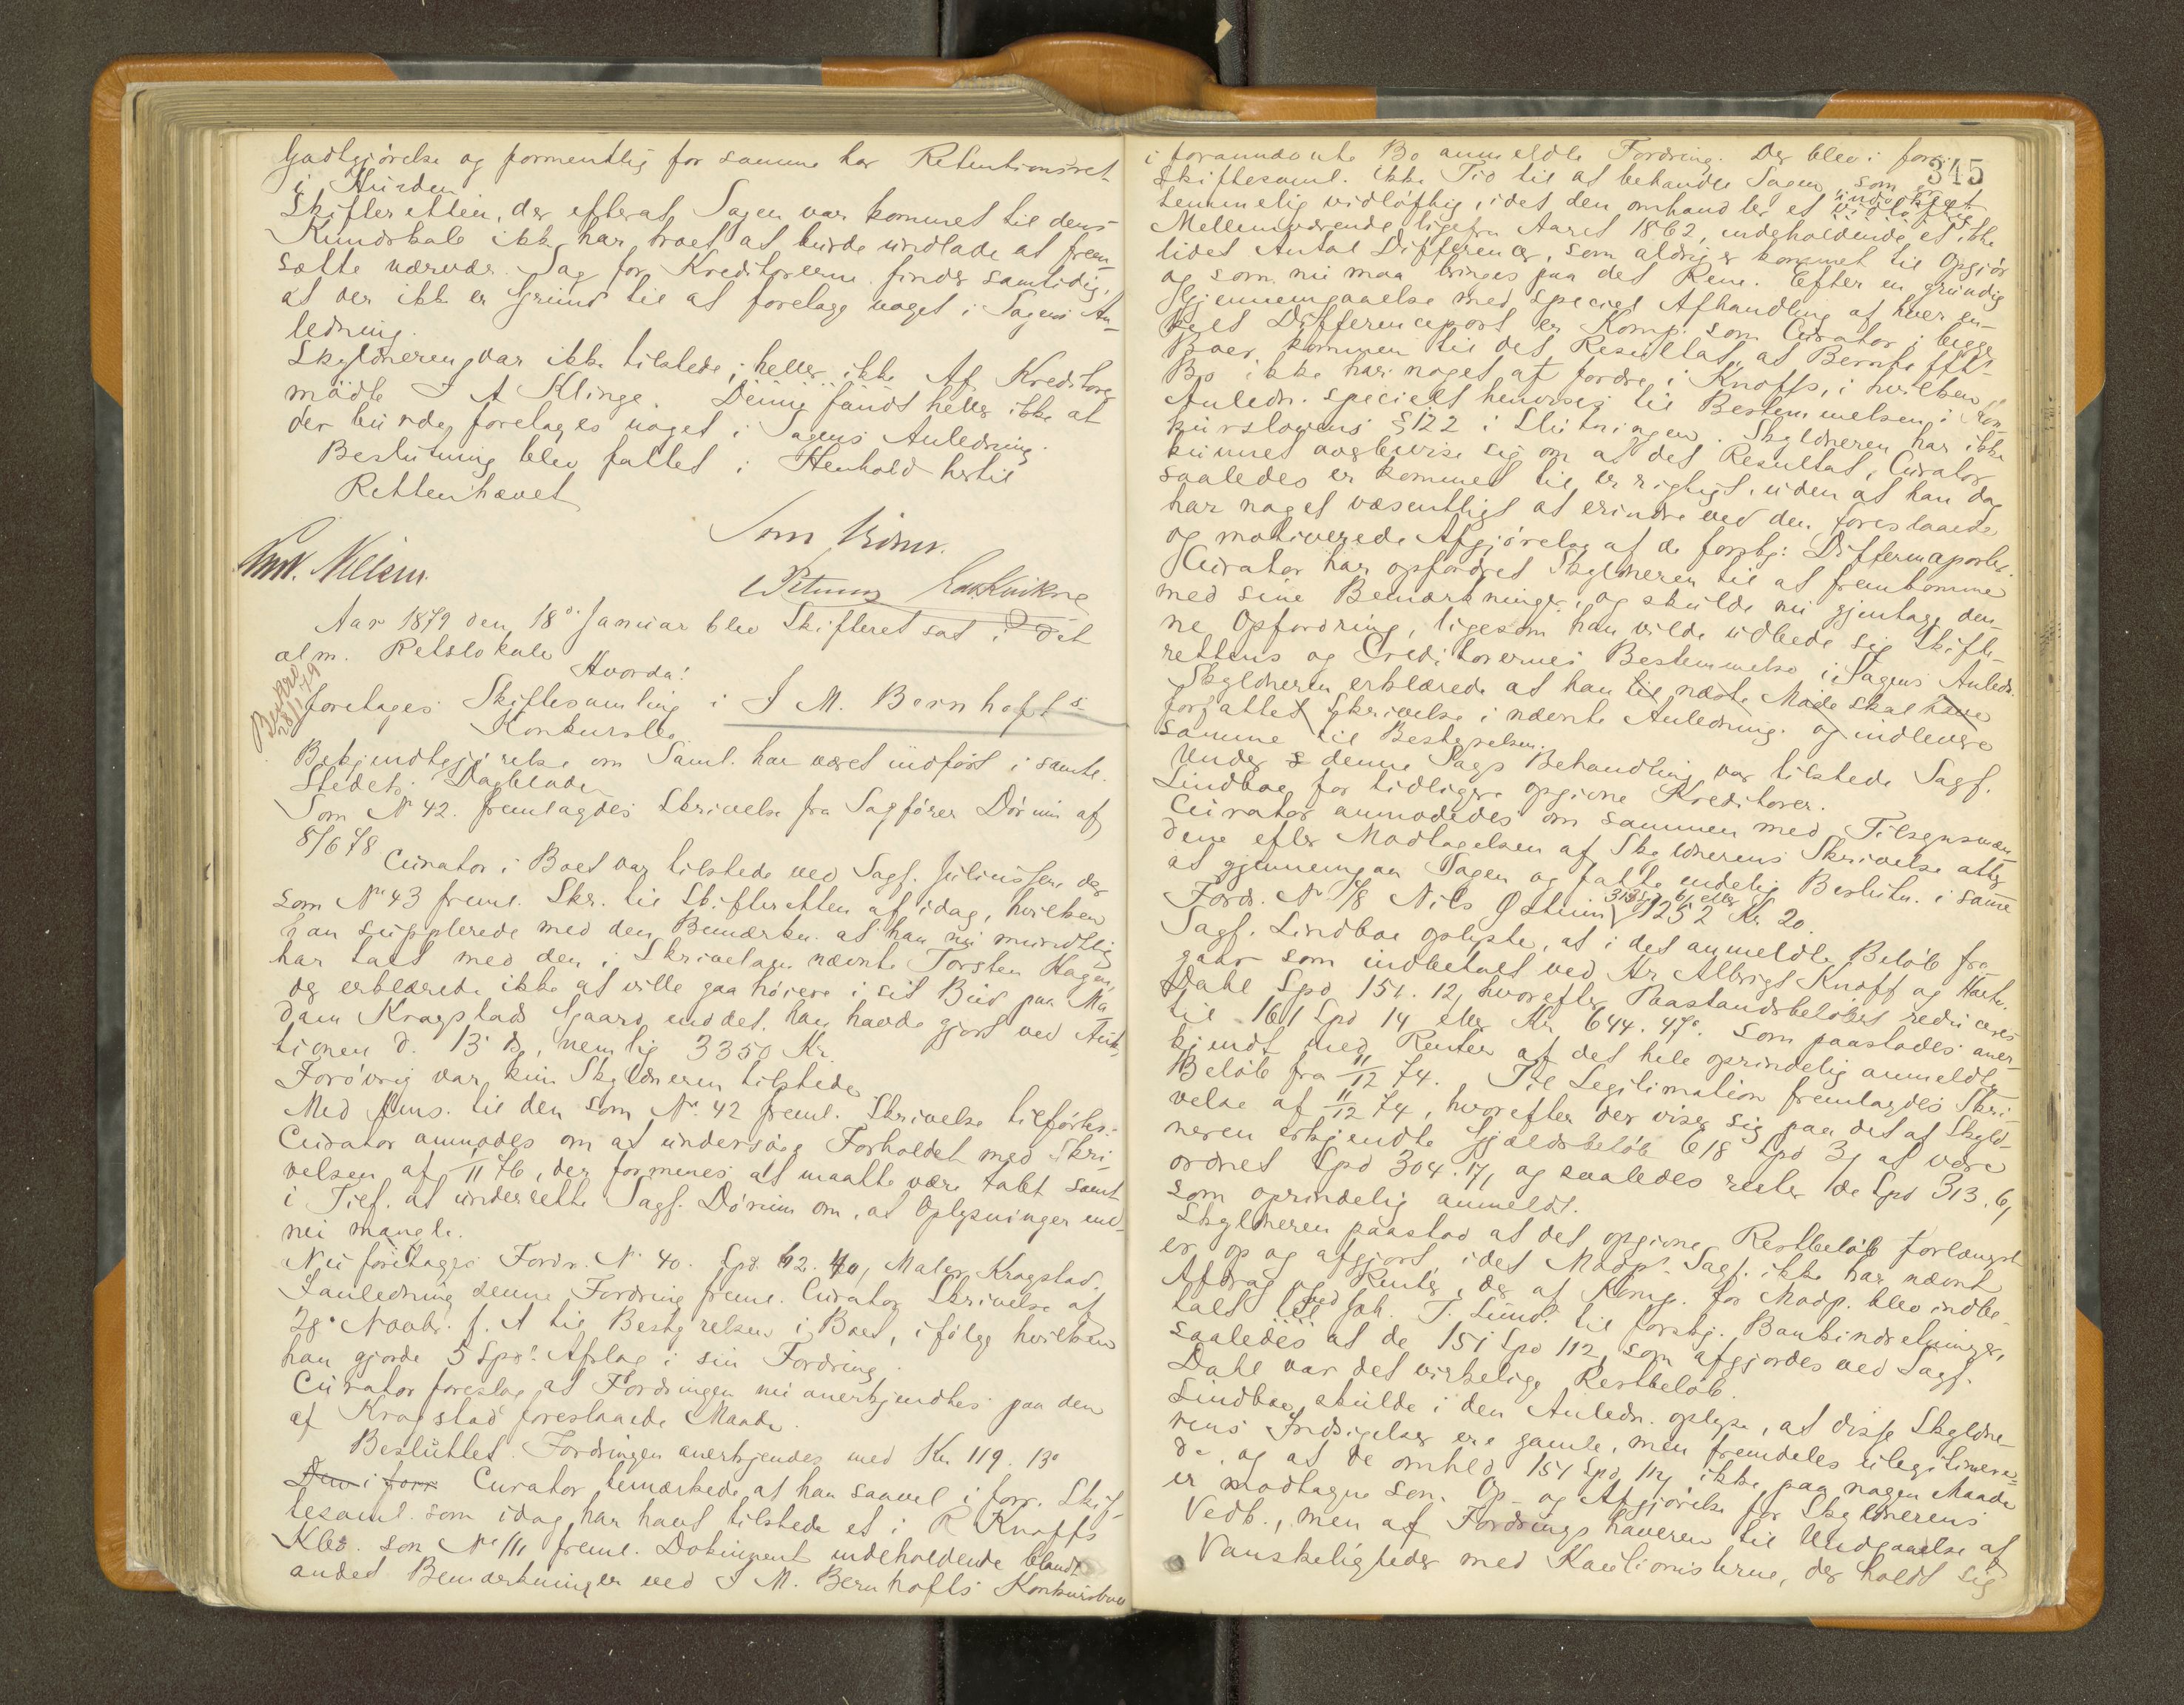 Godtgjørelse og formentlig for samme har Retentionsret
i Hurden.
Skifteretten, der efterat Sagen var kommet til dens
Kundskab ikke har troet at burde undlade at frem-
sætte nærvær. Sag for Kreditorerne finder samtidig,
at der ikke er Grund til at foretage noget i Sagens An-
ledning.
Skyldneren var ikke tilstede, heller ikke Af Kreditore
mødte I A Klinge. Denne fandt heller ikke at
der burde foretages noget i Sagens Anledning.
Beslutning blev fattet i Henhold hertil
Retten hævet
Som Vidner.
Aar 1879 den 18de Januar blev Skifteret sat i det
alm. Retslokale
Hvorda:
foretages Skiftesamling i I M. Bernhofts
Konkursbo
Bekjendtgjørelse om Saml. har været indført i samtl.
Stedets Dagblade
Som No 42. fremlagdes Skrivelse fra Sagfører Dørum af
8/6 78
Curator i Boet var tilstede ved Sagf. Juliussen der
som No 43 freml. Skr. til Skifteretten af idag, hvilken
han supplerede med den Bemærkn. at han nu mundtlig
har talt med den i Skrivelsen nævnte Torsten Hagen,
og erklærede ikke at ville gaa høiere i sit Bud paa Ma-
dam Kragstads Gaard end det, han havde gjort ved Auk-
tionen d. 13 ds, nemlig 3350 Kr.
Forøvrig var kun Skyldneren tilstede
Med Hens. til den som No 42 freml. Skrivelse tilførtes:
Curator anmodes om at undersøge Forholdet med Skri-
velsen af 76, der formenes at maatte være tabt samt
i Tilf. at underrette Sagf. Dørum om, at Oplysninger end-
nu mangle.
Nu foretages Fordr. No 40. Spd. 62. 40, Maler Kragstad.
I anledning denne Fordring freml. Curator Skrivelse af
28. Novbr. f. A til Bestyrelsen i Boet, ifølge hvilken
han gjorde 5 Spds Afslag i sin Fordring.
Curator foreslog at Fordringen nu anerkjendtes paa den
af Kragstad foreslaaede Maade.
Besluttet. Fordringen anerkjendes med Kr. 119. 13o
Den i forr. Curator bemærkede at han saavel i forr. Skif-
tesaml. som idag har havt tilstede et i R Knoffs
Kbo. som No 111 freml. Dokument indeholdende blandt
andet Bemærkninger ved I M. Bernhofts Konkursboes
345
i forannævnte Bo anmeldte Fordring. Der blev i forr.
Skiftesaml. ikke Tid til at behandle Sagen, som er
temmelig vidløftig, idet den omhandler et vidløftig
Mellemværende ligefra Aaret 1862, indeholdende et ikke
lidet Antal Differencer, som aldrig er kommet til Opgjør
og som nu maa bringes paa det Rene. Efter en grundig
Gjennemgaaelse med speciel Afhandling af hver en-
kelt Differencepost er Komp. som Curator i begge
Boer kommen til det Resultat, at Bernhofts
Bo ikke har noget at fordre i Knoffs, i hvilken
Anledn. specielt henvises til Bestemmelsen i Kon-
kurslovens §122 i Slutningen. Skyldneren har ikke
kunnet overbevise sig om at det Resultat, Curator
saaledes er kommet til er rigtigt, uden at han dog
har noget væsentligt at erindre ved den foreslaaede
og motiverede Afgjørelse af de forskj: Differenceposter.
Curator har opfordret Skyldneren til at fremkomme
med sine Bemærkninger, og skulde nu gjentage den-
ne Opfordring, ligesom han vilde udbede sig Skifte-
rettens og Creditorernes Bestemmelse i Sagens Anledn.
Skyldneren erklærede at han til næste Møde skal have
forfattet Skrivelse i nævnte Anledning. og indlevere
samme til Bestyrelsen.
Under denne Sags Behandling var tilstede Sagf.
Lindboe for tidligere opgivne Kreditorer.
Curator anmodedes om sammen med Tilsynsmæn-
dene efter Modtagelsen af Skyldnerens Skrivelse atter
at gjennemgaa Sagen og fatte endelig Beslutn. i samme
Fordr. No 18 Nils Østeim 313 Spd 6 eller 1252 Kr 20.
Sagf. Lindboe oplyste, at i det anmeldte Beløb fra-
gaar som indbetalt ved Hr Albrigt Knoff og Hartv.
Dahl Spd 151. 12, hvorefter Paastandsbeløbet reduceres
til 161 Spd 14 eller Kr 644. 47o. som paastodes aner-
kjendt med Renter af det hele oprindelig anmeldte
Beløb fra 11/12 74. Til Legitimation fremlagdes Skri-
velse af 11/12 74, hvorefter der viser sig paa det af Skyld-
neren erkjendte Gjældsbeløb 618 Spd 3, at være
ordnet Spd 304. 17, og saaledes rester de Spd 313. 6,
som oprindelig anmeldt.
Skyldneren paastod at det opgivne Restbeløb forlængst
er op og afgjort, idet Modp. Sagf. ikke har nævnt
Afdrag og Renter, der af Komp. for Modp. blev indbe-
talt ved Joh. T. Lund til forskj. Bankindretninger,
saaledes at de 151 Spd 112, som afgjordes ved Sagf.
Dahl var det virkelige Restbeløb.
Lindboe skulde i den Anledn. oplyse, at disse Skyldne-
rens Indsigelser ere gamle, men fremdeles ulegitimere-
de, og at de omhdl. 151 Spd 112, ikke paa nogen Maade
er modtagne som Op- og Afgjørelse for Skyldnerens
Vedk., men af Fordringshaveren til Undgaaelse af
Vanskeligheder med Kautionisterne, der holdt sig